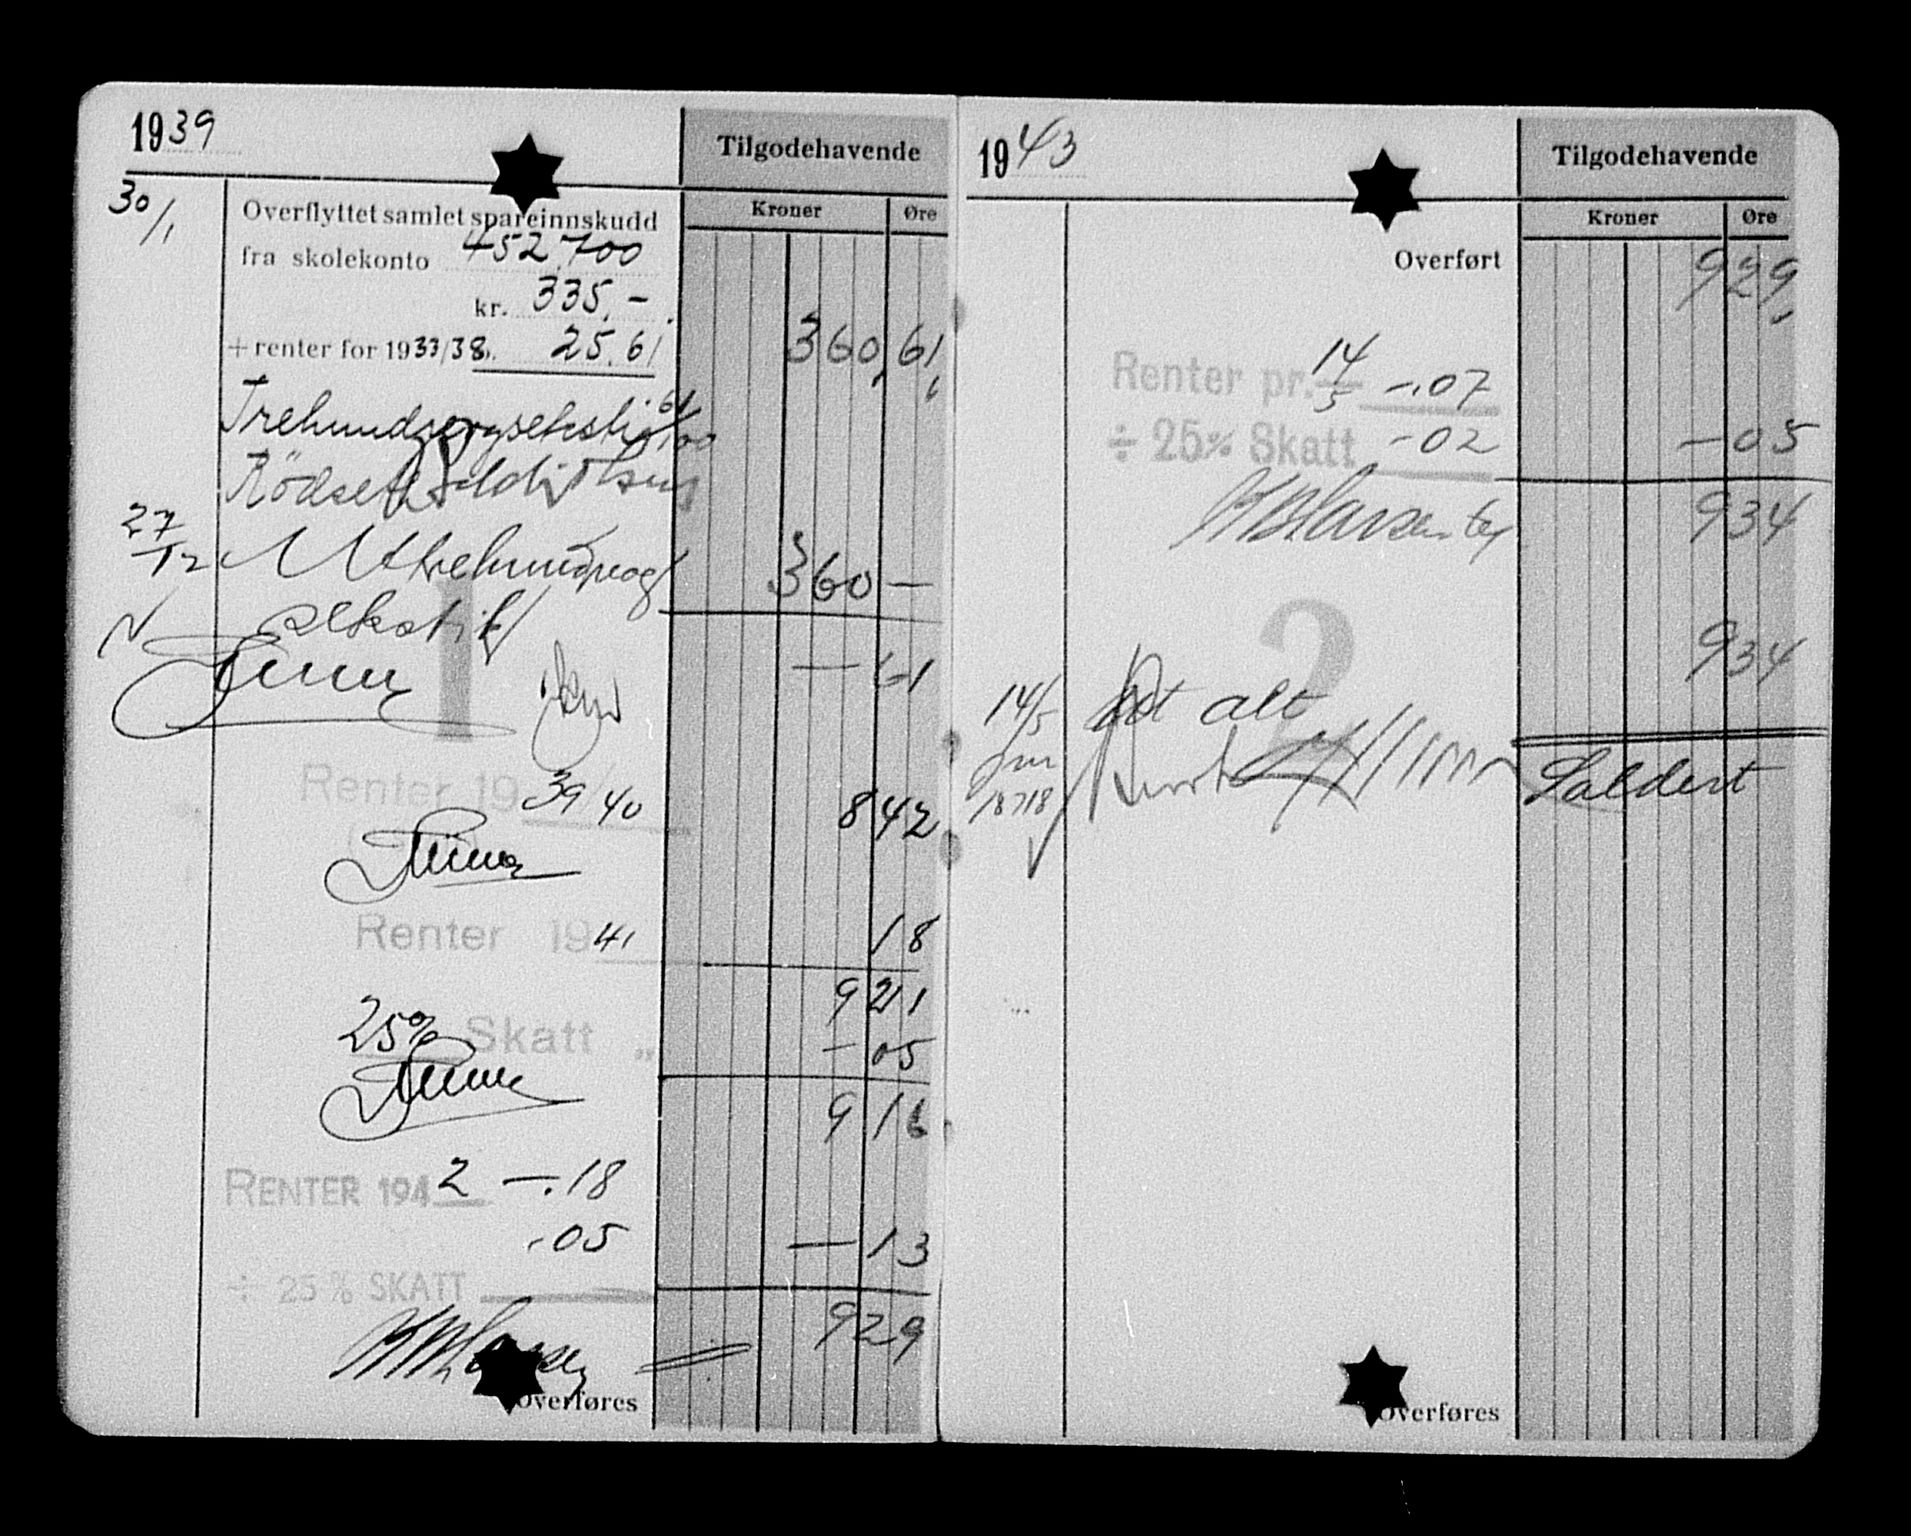 1939
Tilgodehavende
Kroner Øre
30/1
Overflyttet samlet spareinnskudd
fra skolekonto 452.700
kr. 335.-
+ renter for 1933/38 25.61 360,61
Trehundreogseksti 61/100
27/12 Ut trehundreog 360 —
seksti
— 61
1
Renter 19 39/40 8 42
Renter 1941 18
9 21
25% Skatt „ — 05
9 16
RENTER 1942 —.18
-05 — 13
÷ 25 % SKATT
929
Overføres
1943
Tilgodehavende
Kroner Øre
Overført 929
Renter pr. 14/5 -.07
÷ 25% Skatt -02 —05
934
2
934
14/5 alt
18718 Saldert
Overføres